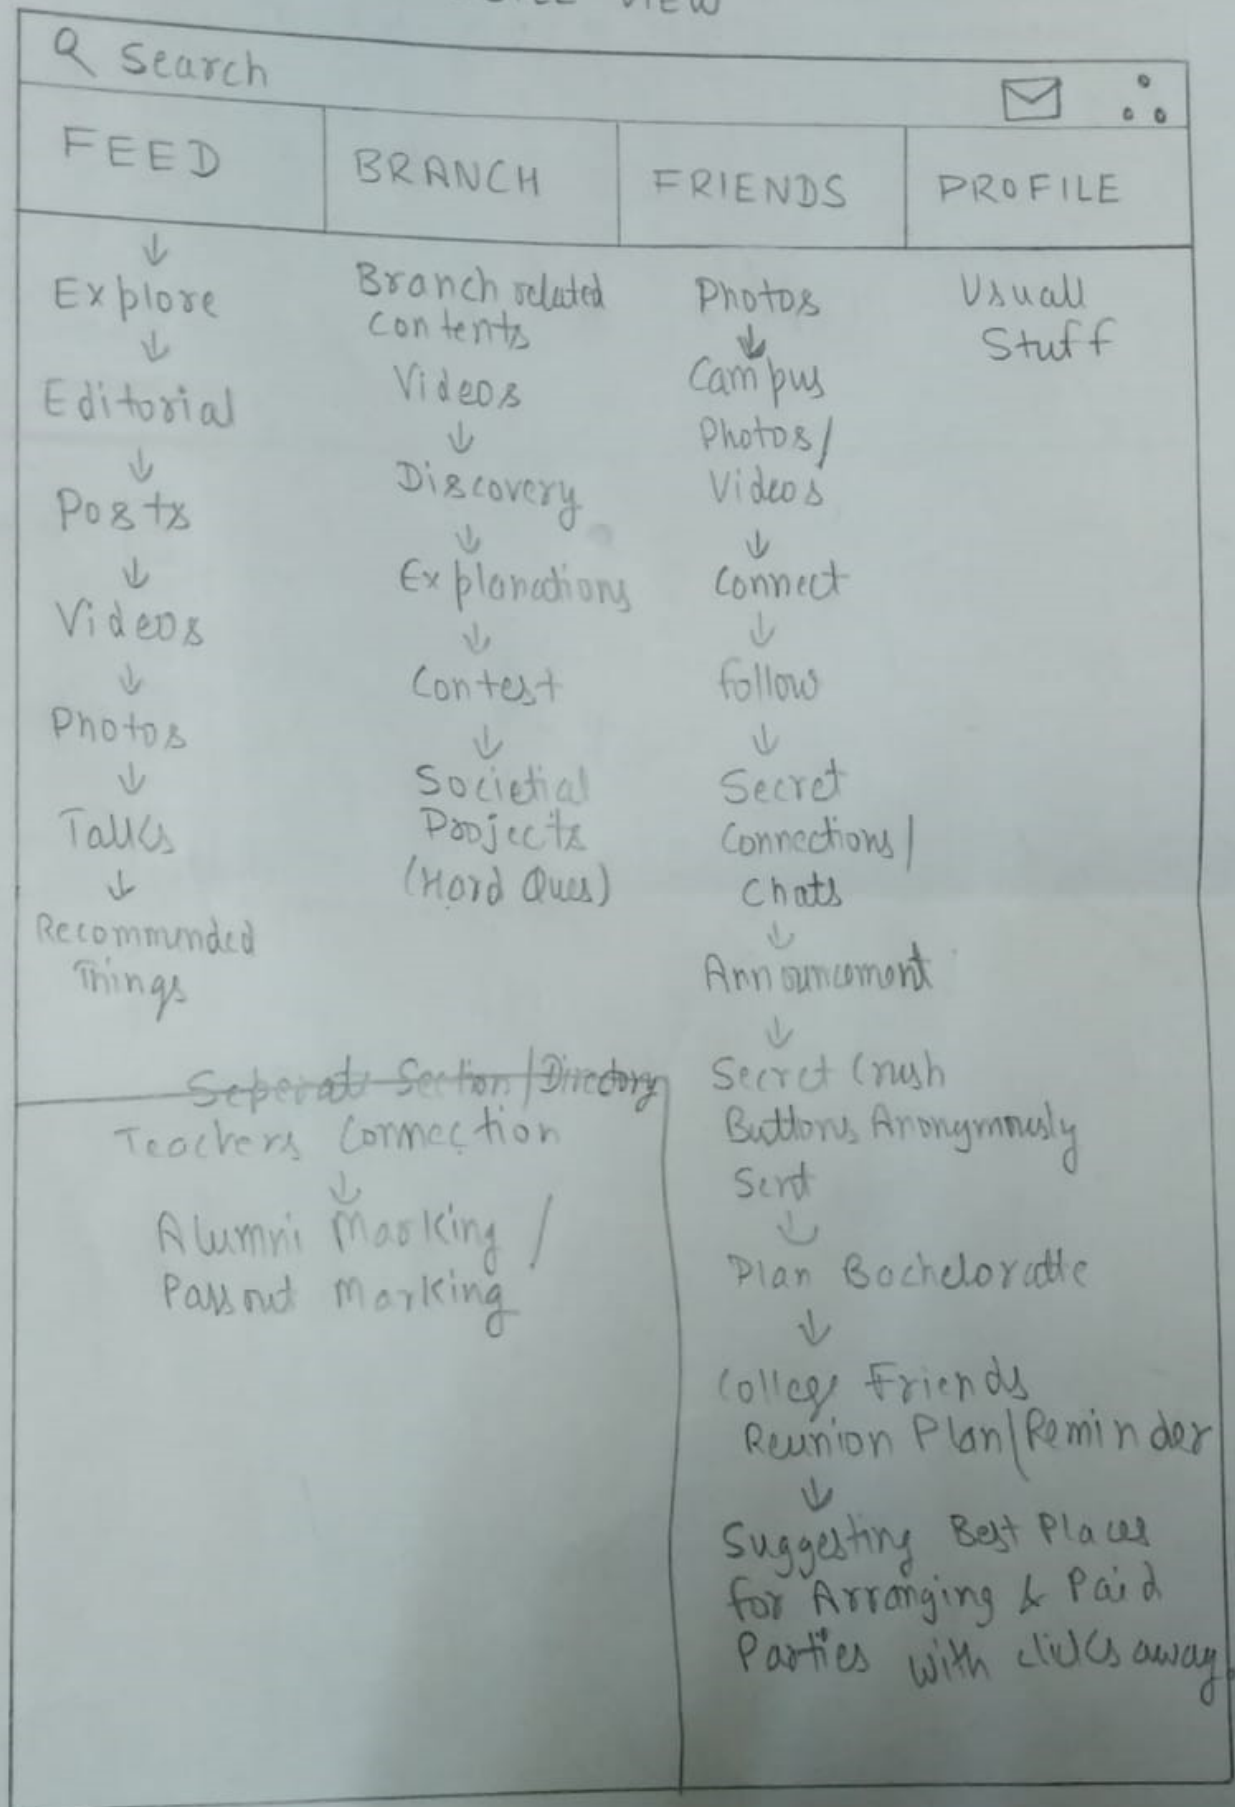 VIEW
Search
FEED
BRANCH
FRIENDS
PROFILE
Explore
Editorial
Posts
Videos
Photos
Talks
Recommended
Things
Branch related
Contents
Videos
Discovery
Explanations
Contest
Societial
Projects
(Hard Ques)
Photos
Campus
Photos/
Videos
Connect
follow
Secret
Connections/
Chats
Announcement
Secret Crush
Buttons Anonymously
Sent
Plan Bacheloratte
College Friends
Reunion Plan/Reminder
Suggesting Best Places
for Arranging & Paid
Parties with clicks away
Usuall
Stuff
Seperate Section/Directory
Teachers Connection
Alumni Marking /
Passout Marking